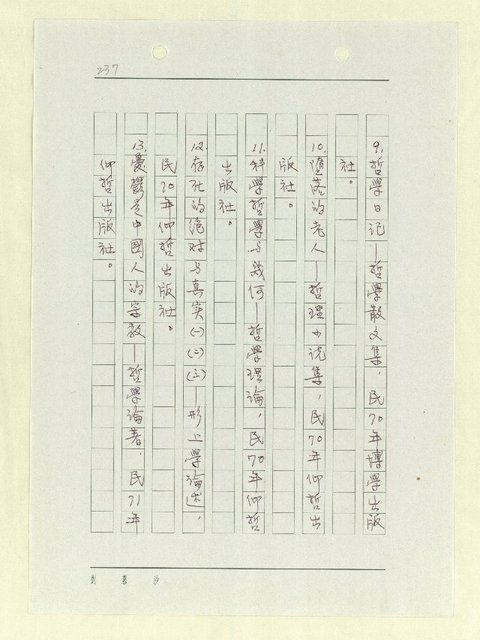 237
9.哲學日記—哲學散文集，民70年博學出版
社。
10.墮落的老人—哲理小说集，民70年仰哲出
版社。
11.科學哲學与幾何—哲學理論，民70年仰哲
出版社。
12.存在的绝对与真实(一)(二)(三)—形上學論述，
民70年仰哲出版社。
13.憂鬱是中國人的宗教—哲學論著，民71年
仰哲出版社。